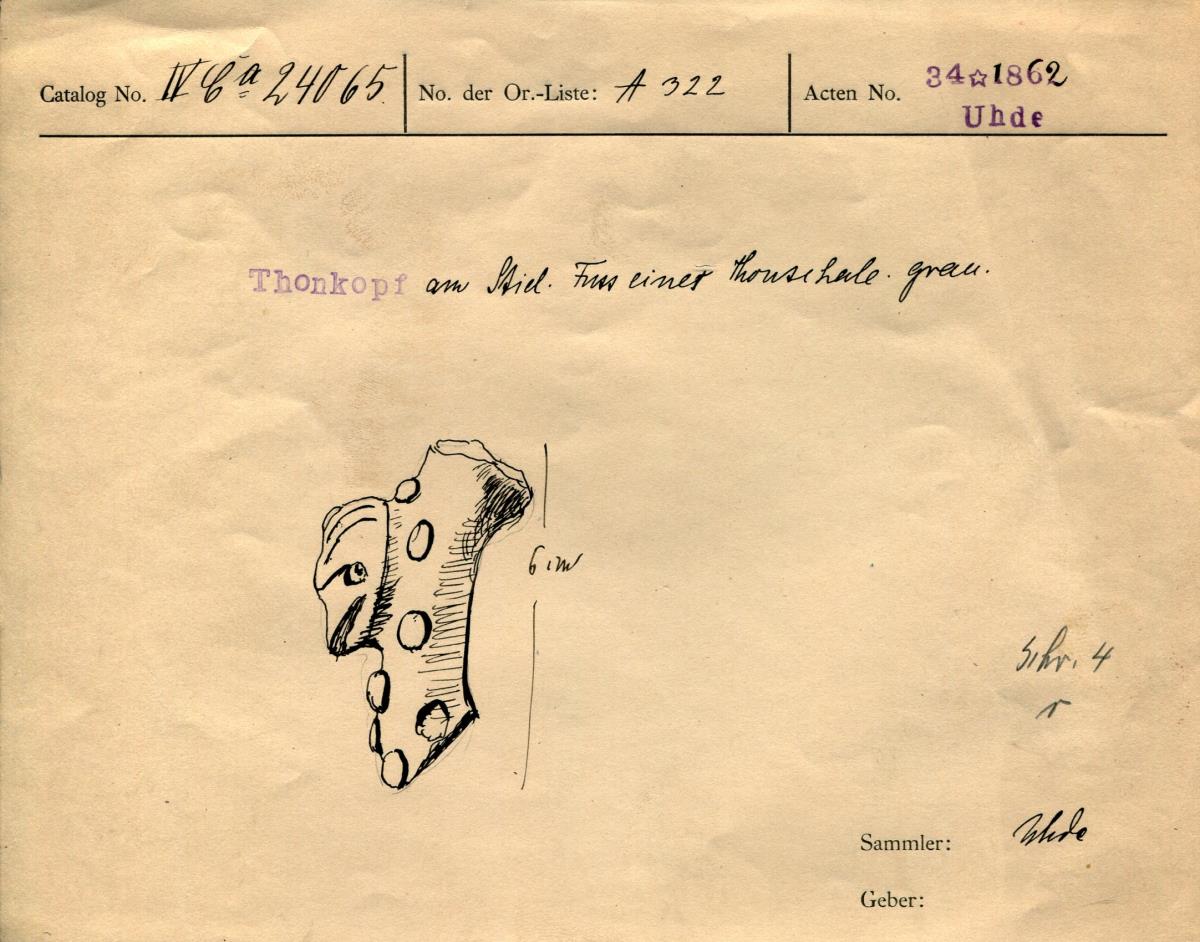 Catalog No. IV Ca 24065. No. der Or.-Liste: A 322 Acten No. 34☆1862
Uhde
Thonkopf am Stiel. Fuss einer Thonschale. grau.
6 cm
Schr. 4
r
Sammler: Uhde
Geber: